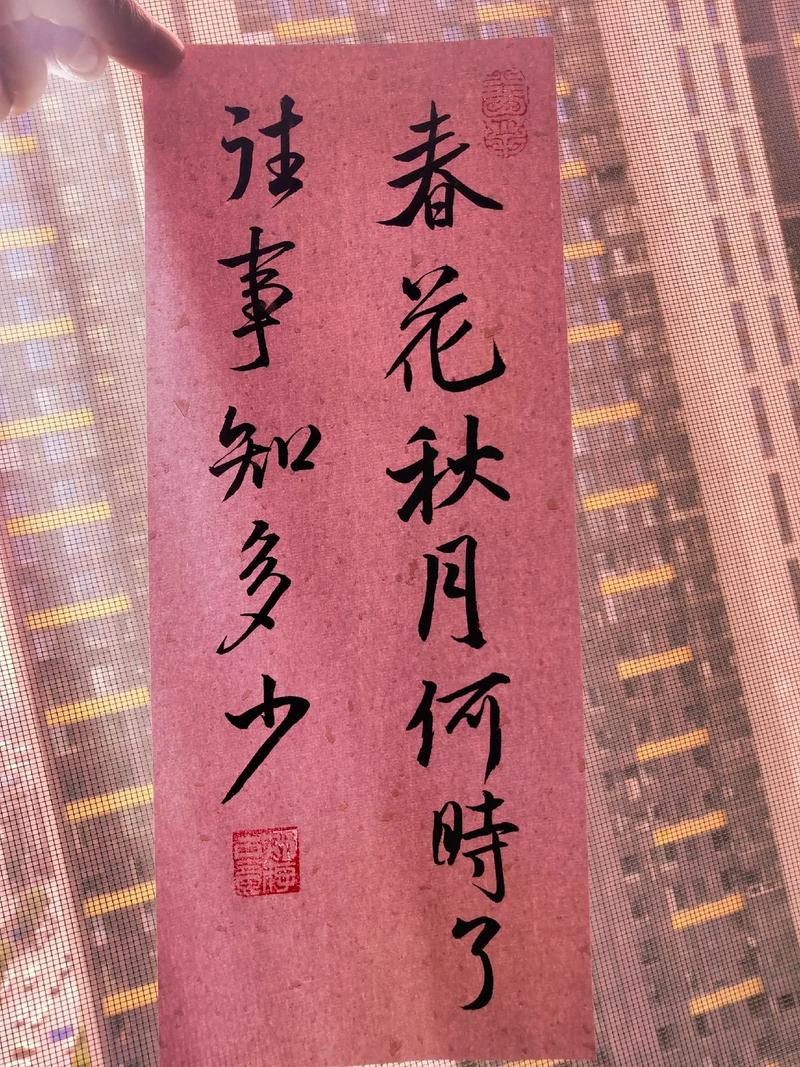 春花秋月何時了
往事知多少